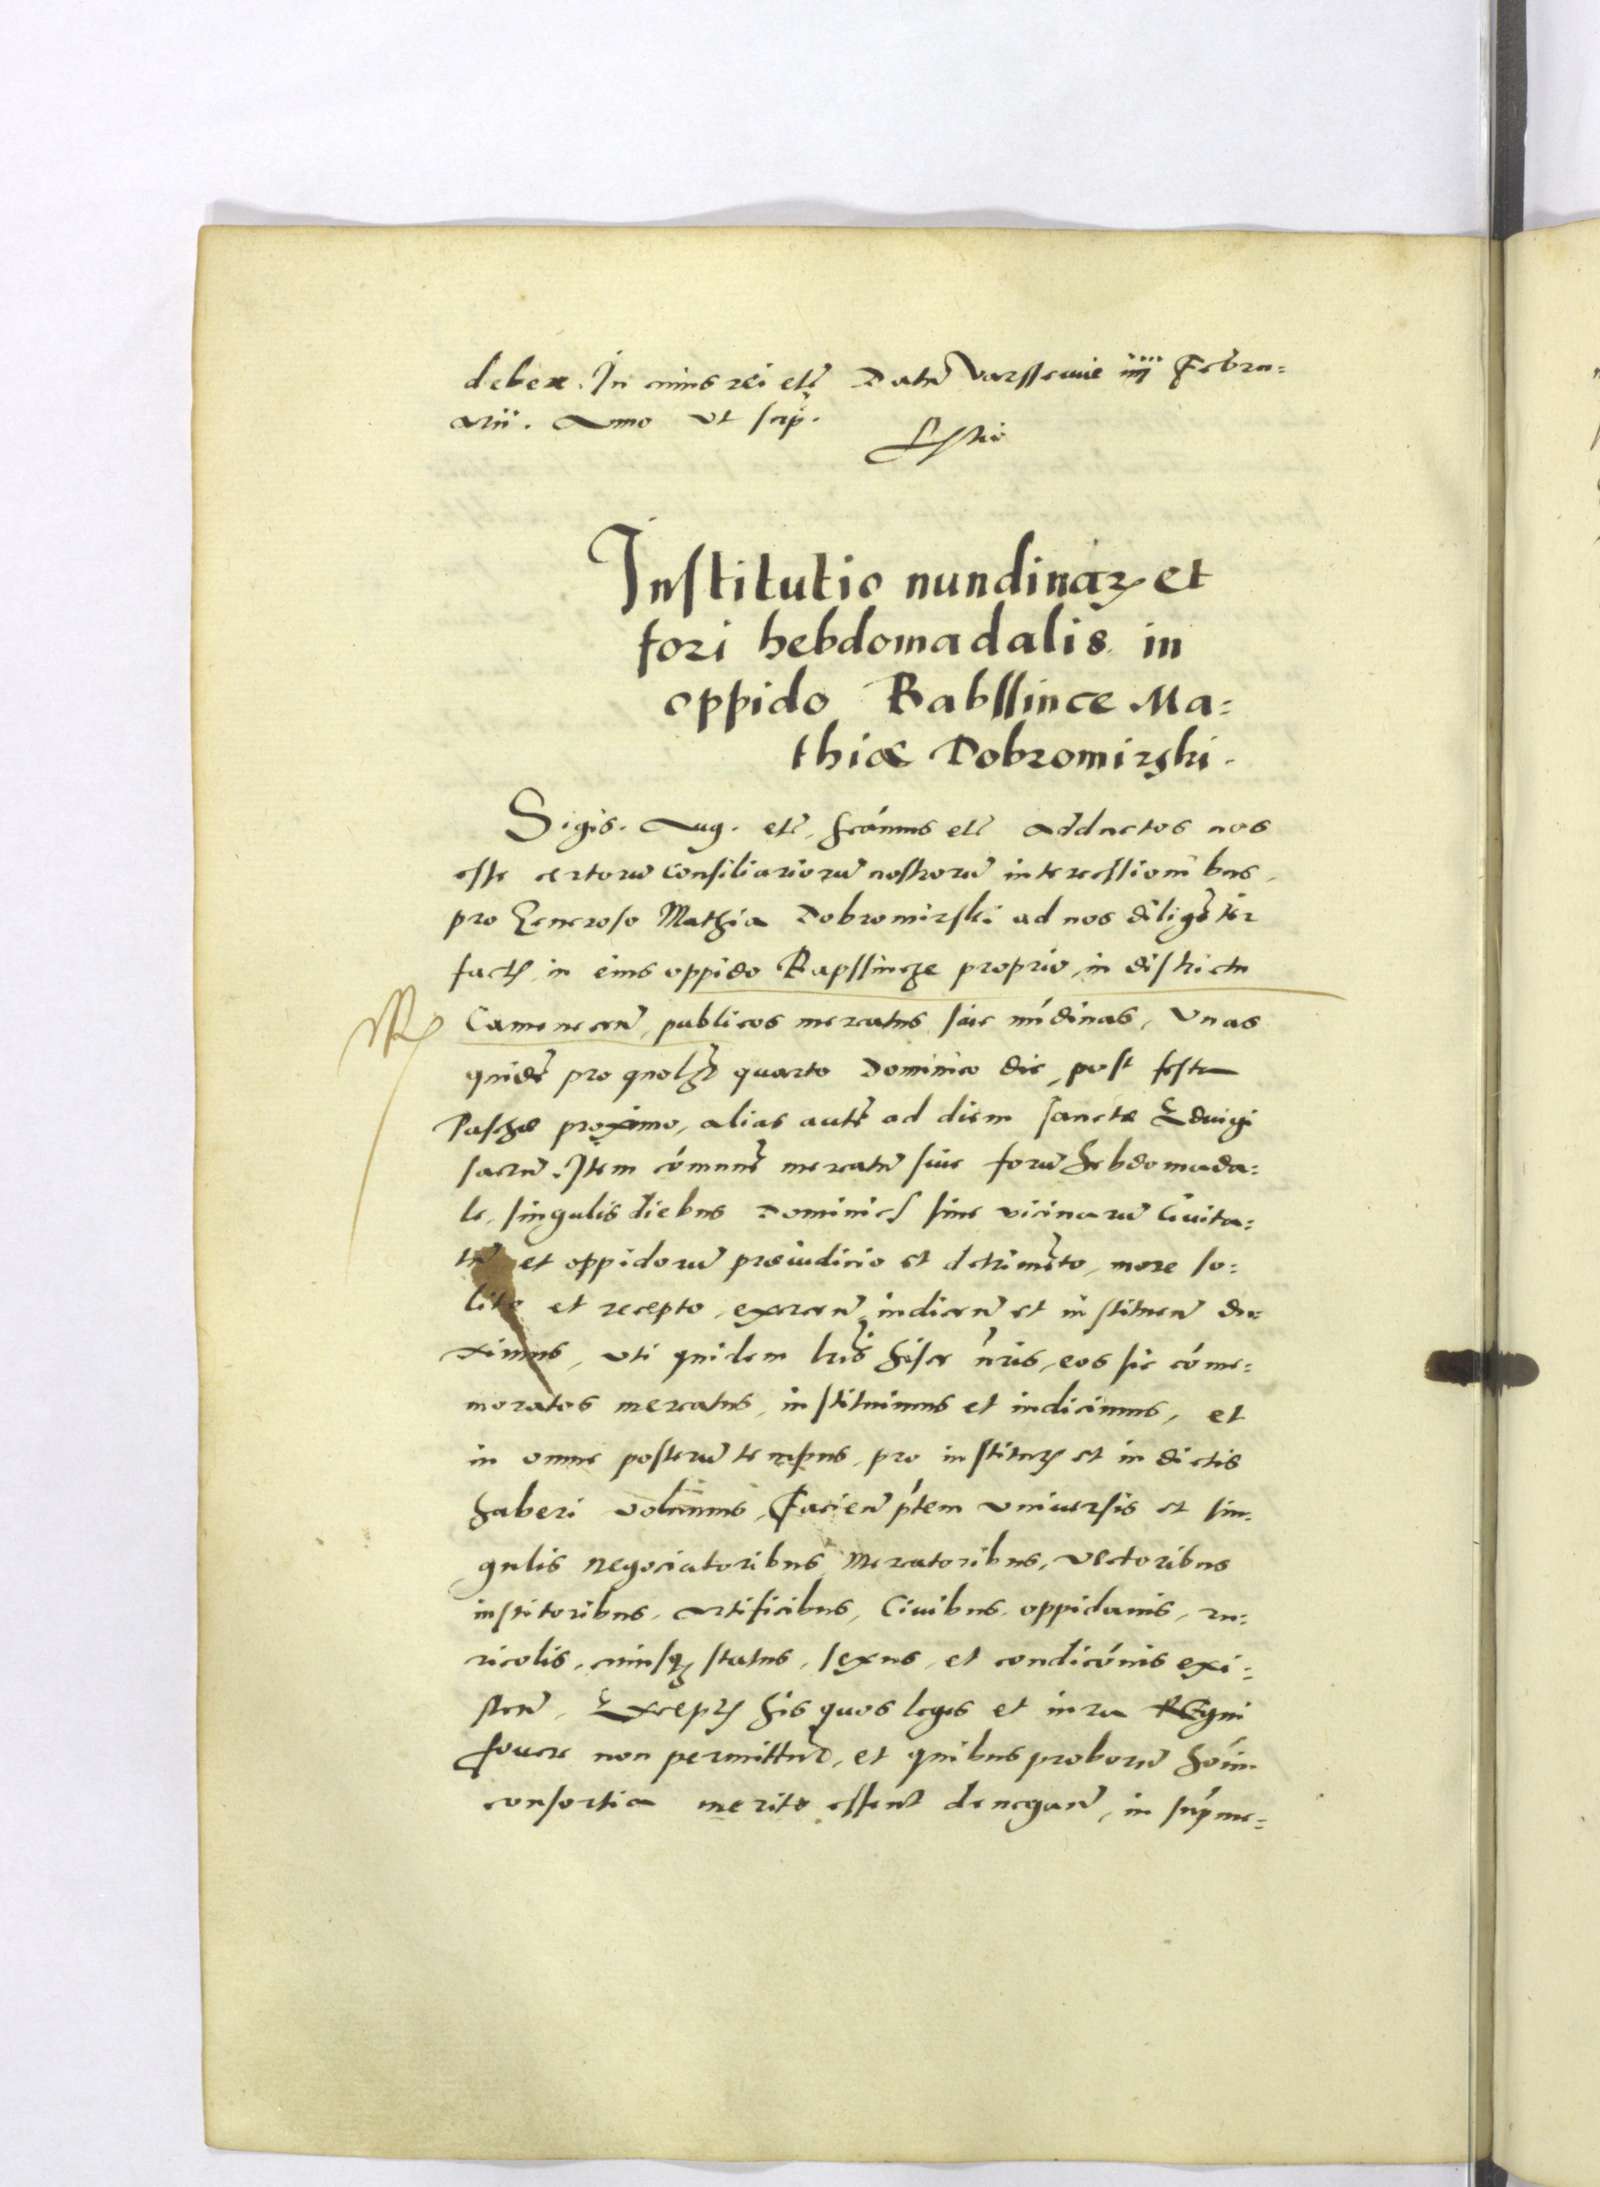 debere. In cuius rei etc̃ Datũ Varsseuiæ iiii Februa=
arii. Anno ut supꝛ.
Institutio nundinaꝝ et
fori hebdomadalis in
oppido Rabssince Ma=
thiæ Dobromirski.
Sigis. Aug. etc̃. Scámus etc̃ adductos nos
esse certorũ Consiliariorũ nostrorũ intercessionibus,
pro Generoso Mathia Dobromirski ad nos diligẽter
factis, in eius oppido Rapssincze proprio, in districtu
Camenecen̄, publicos mercatus siue nũdinas, Unas
quidẽ pro quolꝫ quarto Dominico die, post festa
Paschæ proximo, alias autẽ ad diem sanctæ Eduigi
sacrũ. Item cómunẽ mercatũ siue forũ hebdomada=
le, singulis diebus Dominicis sine vicinarũ Ciuita=
tũ et oppidorũ præiudicio et detrimẽto, more so=
lito et recepto, exercen̄ indicen̄ et instituen̄ du=
ximus, uti quidem lr̃is hisce n̄ris, eos sic cóme=
moratos mercatus, instituimus et indicimus, et
in omne posterũ tempus, pro institutis et indictis
haberi volumus, Facien̄ p̃tem Uniuersis et sin=
gulis Negociatoribus, Mercatoribus, Vectoribus
institoribus, Artificibus, Ciuibus, oppidanis, ru=
ricolis, cuiusqꝫ status, sexus, et condicónis exi=
sten̄. Exceptis his quos leges et iura Regni
fouere non permittunt, et quibus proborũ hóim
consortia merito essent denegan̄, in suṕme=